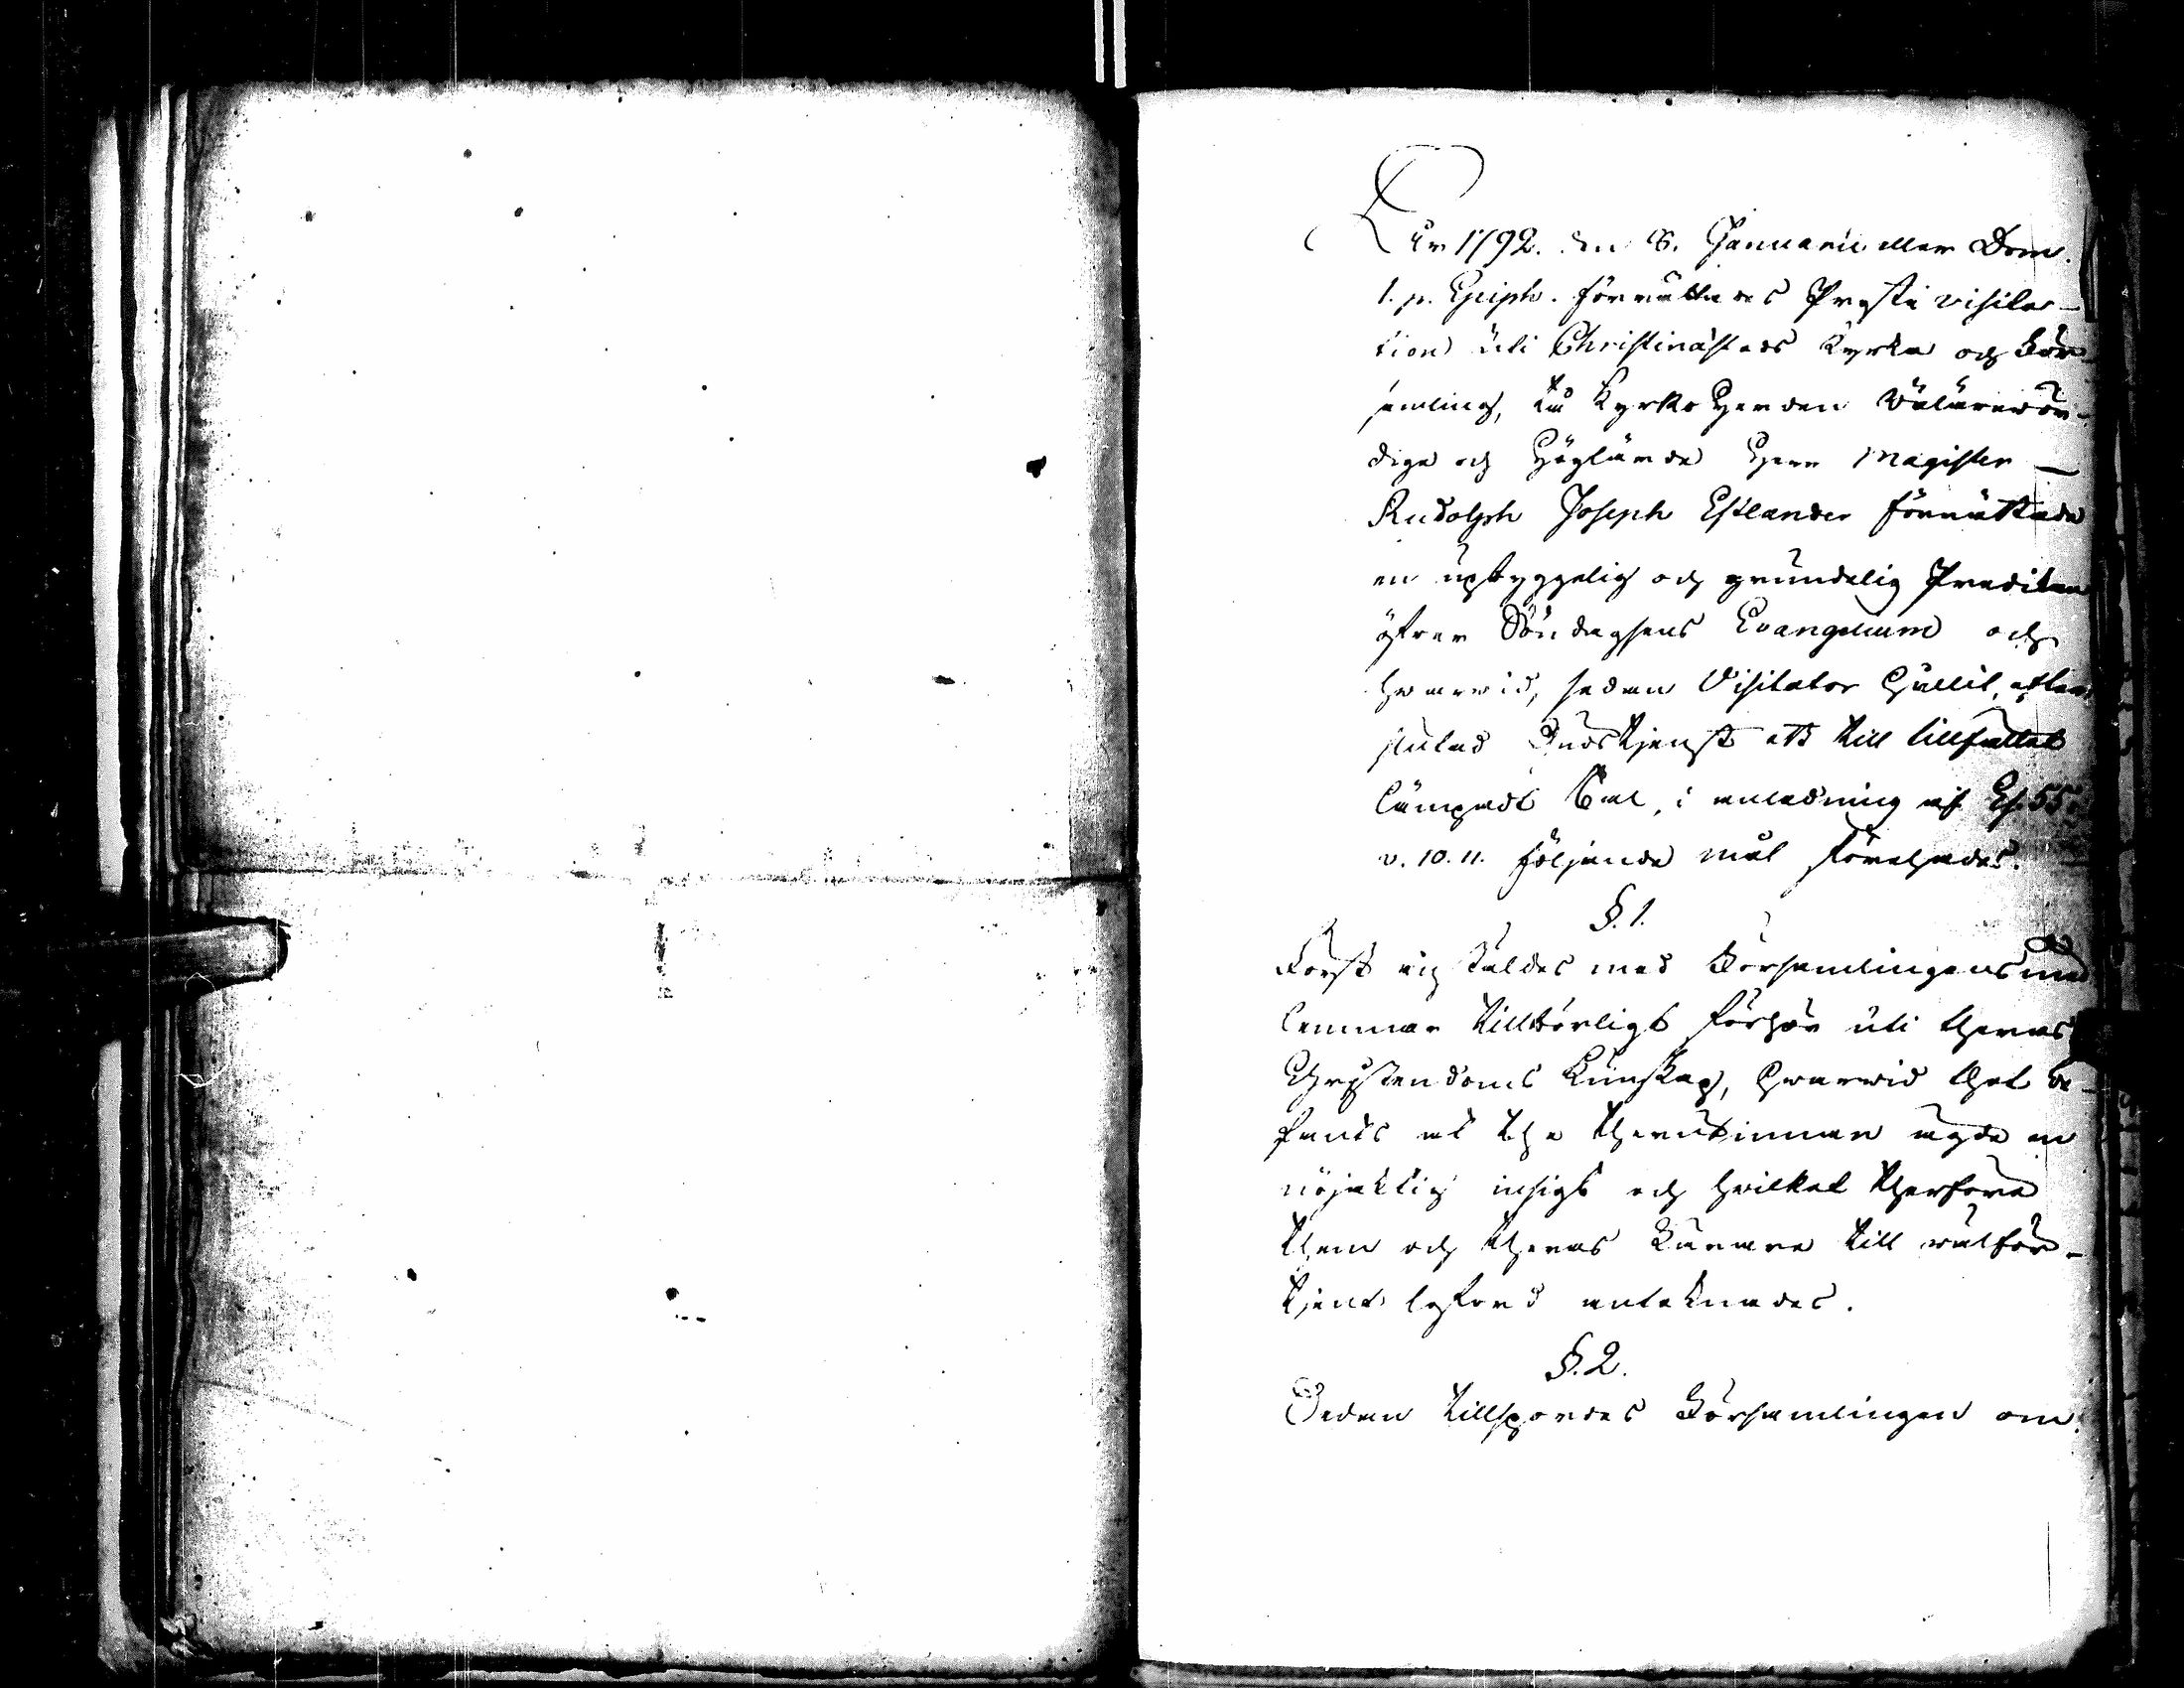 År 1792. den 8. Januarii eller Dom.
1. p. Epiph. förrättades Prosti visita-
tion uti Christinæstads Kyrka och För-
samling, då KyrkoHerden Wälärewör-
dige och Höglärde Herr Magister
Rudolph Joseph Estlander förrättade
en upbyggelig och grundelig Predikan
öfwer Söndagsens Evangelium och
hwarwid, sedan Visitator hållit, efter
slutad Gudstjenst ett till tillfället
lämpadt Tal, i anledning af Es. 55.
v. 10. 11. följande mål förehades.
§. 1.
Först anstäldes med Församlingens med
lemmar tillbörligt förhör uti theras
Christendoms Kunskap, hwarwid thet be-
fants at the therutinnan ägde en
nöjaktig insigt och hwilket therföre
them och theras Lärare till wälför-
tjent loford anteknades.
§. 2.
Sedan tillspordes Församlingen om